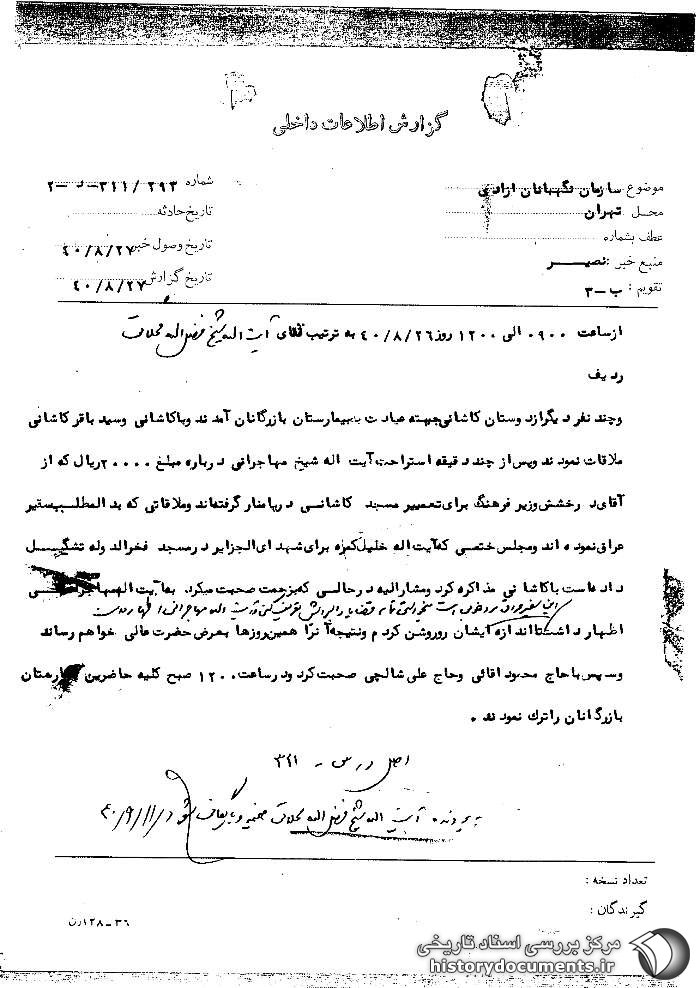 گزارش اطلاعات داخلی
موضوع سازمان نگهبانان ازادی
محل تهران
عطف بشماره
منبع خبر : نصیر
تقویم : ب-۳
شماره ۳۱۱/۲۹۳-د-۲
تاریخ حادثه
تاریخ وصول خبر ۴۰/۸/۲۷
تاریخ گزارش ۴۰/۸/۲۷
ازساعت ۰۹۰۰ الی ۱۲۰۰ روز ۴۰/۸/۲۶ به ترتیب آقای آیت اله شیخ فضل اله محلاتی
ردیف
وچند نفر دیگرازدوستان کاشانی جهته عیادت به بیمارستان بازرگانان آمدند وباکاشانی وسید باقرکاشانی
ملاقات نمودند وپس از چند دقیقه استراحت آیت اله شیخ مهاجرانی درباره مبلغ ۲۰۰۰۰ ریال که از
آقای درخشش وزیر فرهنگ برای تعمیر مسجد کاشانی درپامنار گرفته‌اند وملاقاتی که بدالمطلب سفیر
عراق نموده اند ومجلس ختمی که آیت اله خلیل کمره برای شهدای الجزایر درمسجد فخرالدوله تشکیل
داده است باکاشانی مذاکره کرد ومشارالیه درحالی که بزحمت صحبت میکرد به آیت اله مهاجرانی
این سفیر عراق مرد خوبی است
اظهار داشت تااندازه آیشان روروشن کردم ونتیجه آنرا همین روزها بعرض حضرت عالی خواهم رساند
وسپس باحاج محمود اقائی وحاج علی شالچی صحبت کرد ودرساعت ۱۲۰۰ صبح کلیه حاضرین بیمارستان
بازرگانان راترك نمودند .
اصل در س - ۳۲۱
به پرونده آیت اله شیخ فضل اله محلاتی ضمیمه و بایگانی شود ۴۰/۹/۱۱
تعداد نسخه :
گیرندگان :
۳۶-۱۲۸رن
مرکز بررسی اسناد تاریخی
historydocuments.ir